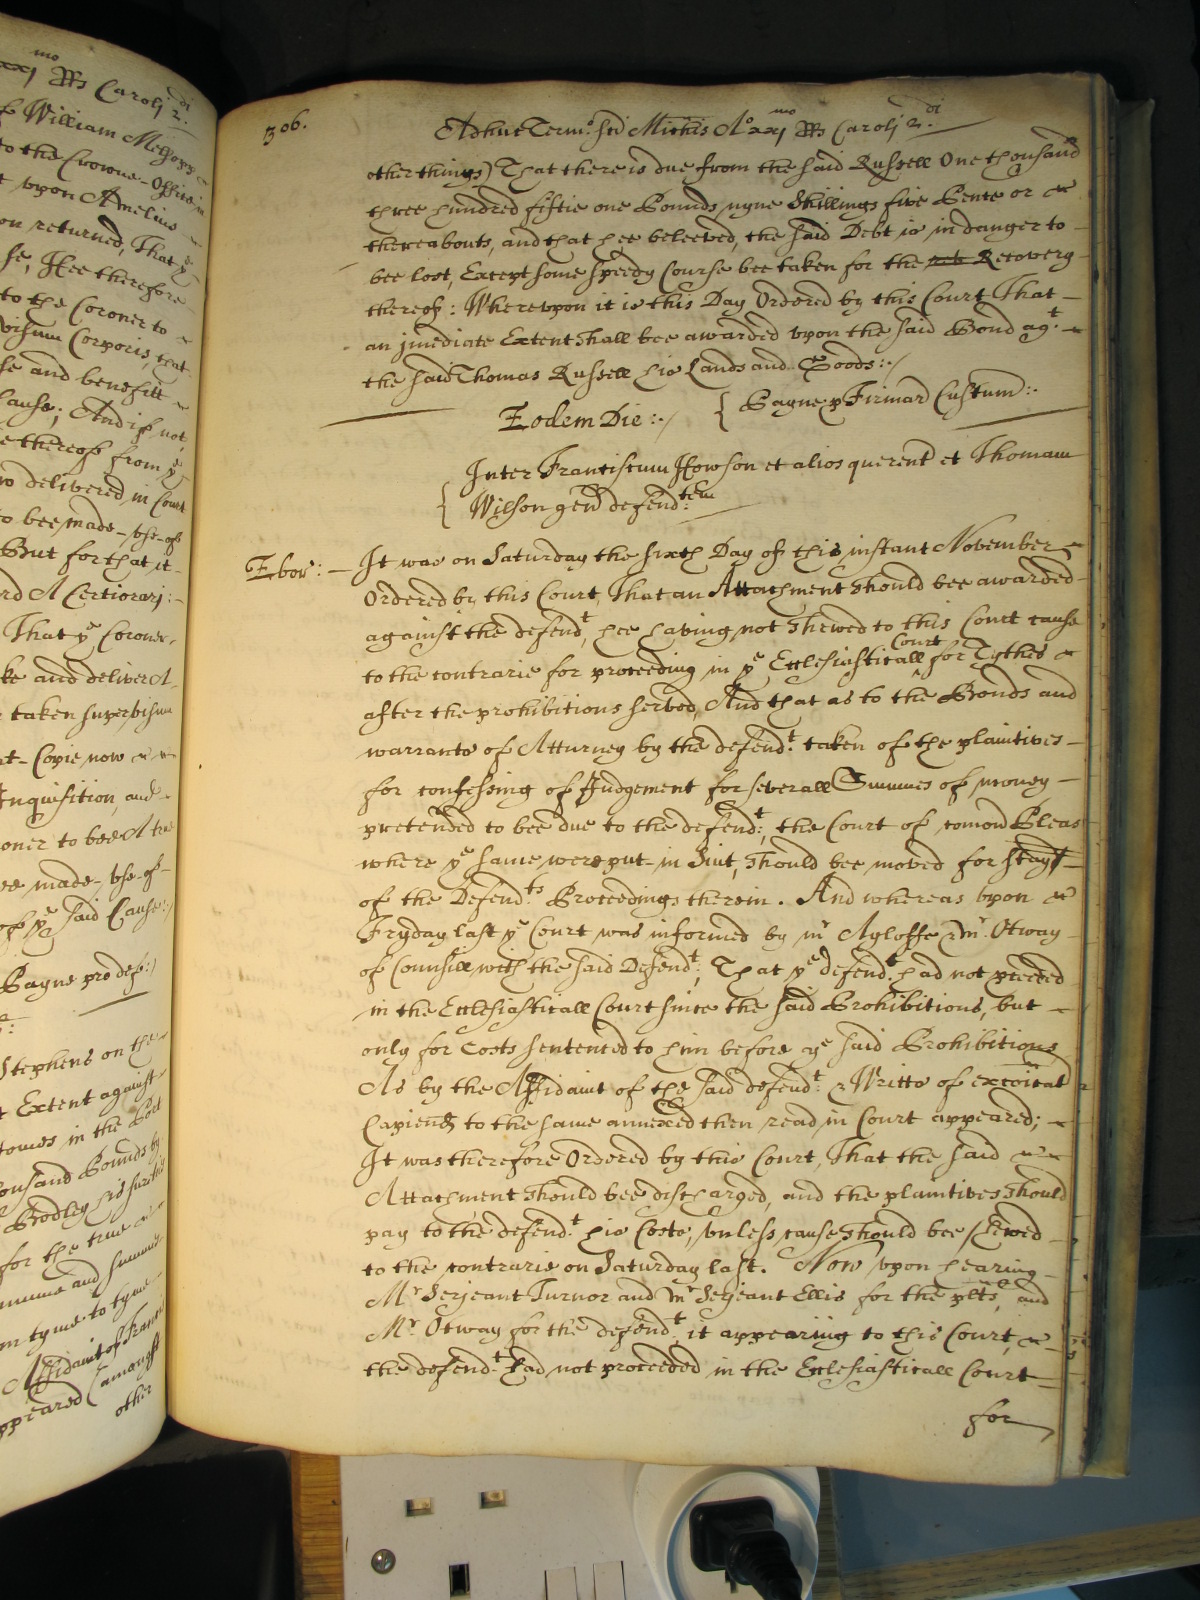 xxj mo Rs Caroli 2 di
of William
to the Crowne-Office
upon Amelius
on returned, That ye
se, Hee therefore
to the Coroner to
visum Corporis, that
se and benefitt
Cause; And if not
e thereof from ye
delivered, in Court
to bee made - vse - of
But forthat, it
rd A Certiorarj:
That ye Coroner,
ke and deliver A
taken supervisum
at - Copie now
Inquisition, and
oner to bee A true
ee made - vse - of -
of ye said Cause:
Bayne pro def:
Stephens on the
Extent against
tomes in the Port
ousand Pounds by
Bodley his suretie
for the true
and summes
om tyme to tyme
Affidavit of Francis
ppeared (amongst
other
306.
Adhuc Termo: Sci Michis Ao xxj mo Rs Caroli 2. di
other things) That there is due from the said Russell One thousand
three hundred fiftie one Pounds nyne Shillings five Pence or
thereabouts, and that hee beleeved, the said Debt is in danger to
bee lost, Except some speedy Course bee taken for the Recovery
thereof: Wherevpon it is this Day Ordered by this Court That
an jmediate Extent shall bee awarded vpon the said Bond agt.
the said Thomas Russell his Lands and Goods:
Bayne p Firmar Custum:
Eodem Die:
Inter Franciscum Howson et alios querent et Thomam
Wilson gen defend tem
Ebor: It was on Saturday the sixth Day of this instant November
Ordered by this Court, That an Attachment should bee awarded
against the defendt, hee having not shewed to this Court cause
to the contrarie for proceeding in ye Ecclesiasticall Court for Tythes
after the prohibitions served, And that as to the Bonds and
warrants of Atturney by the defendt: taken of the plaintives
for confessing of Judgement for severall Summes of money
pretended to bee due to the defendt:, the Court of comon Pleas
where ye same were put in Suit, should bee moved for stay
of the Defendts: Proceedings therein. And whereas vpon
Fryday last ye Court was informed by mr Ayloffe & mr. Otway
of Counsill with the said Defendt:, That ye defendt. had not pceeded
in the Ecclesiasticall Court since the said Prohibitions, but
only for Costs sentenced to him before ye said Prohibitions
As by the Affidavit of the said defendt: & Writts of excoicat
Capiend to the same annexed then read in Court appeared;
It was therefore Ordered by this Court, That the said
Attachment should bee discharged, and the plaintives should
pay to the defendt: his Costs, vnless cause should bee shewed
to the contrarie on Saturday last. Now vpon hearing
Mr Serjeant Turnor and mr Serjeant Ellis for the plts, and
Mr. Otway for the defendt, it appearing to this Court,
the defendt: had not proceeded in the Ecclesiasticall Court
for